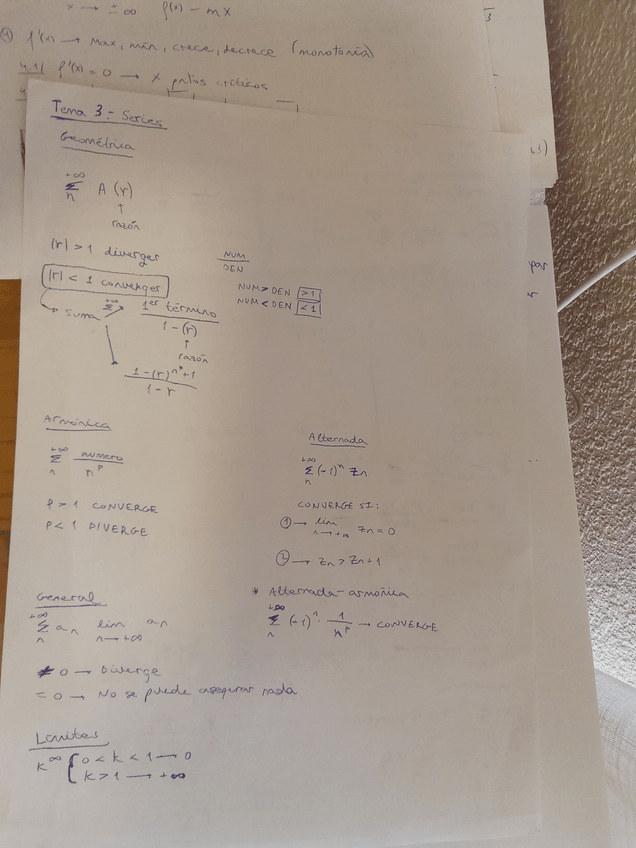 x → ± ∞ f(x) - mx
④ f'(x) → Max, min, crece, decrece (monotonía)
4.1/ f'(x) = 0 → x ptos críticos
Tema 3: Series
Geométrica
+∞
Σ A (r)
n
↑
razón
|r| > 1 diverger
|r| < 1 converger
NUM
DEN
NUM > DEN >1
NUM < DEN <1
→ Suma +∞ Σ 1er término
1 - (r)
↑
razón
1 - (r)^n+1
1 - r
Armónica
+∞
Σ número
n n^p
P > 1 CONVERGE
P < 1 DIVERGE
Alternada
+∞
Σ (-1)^n Zn
n
CONVERGE SI:
① → lim Zn = 0
n → +∞
② → Zn > Zn+1
General
+∞
Σ an lim an
n n → +∞
≠ 0 → Diverge
= 0 → No se puede asegurar nada
* Alternada-armónica
+∞
Σ (-1)^n · 1/n^p → CONVERGE
n
Límites
K^∞ { 0 < k < 1 → 0
k > 1 → +∞
par